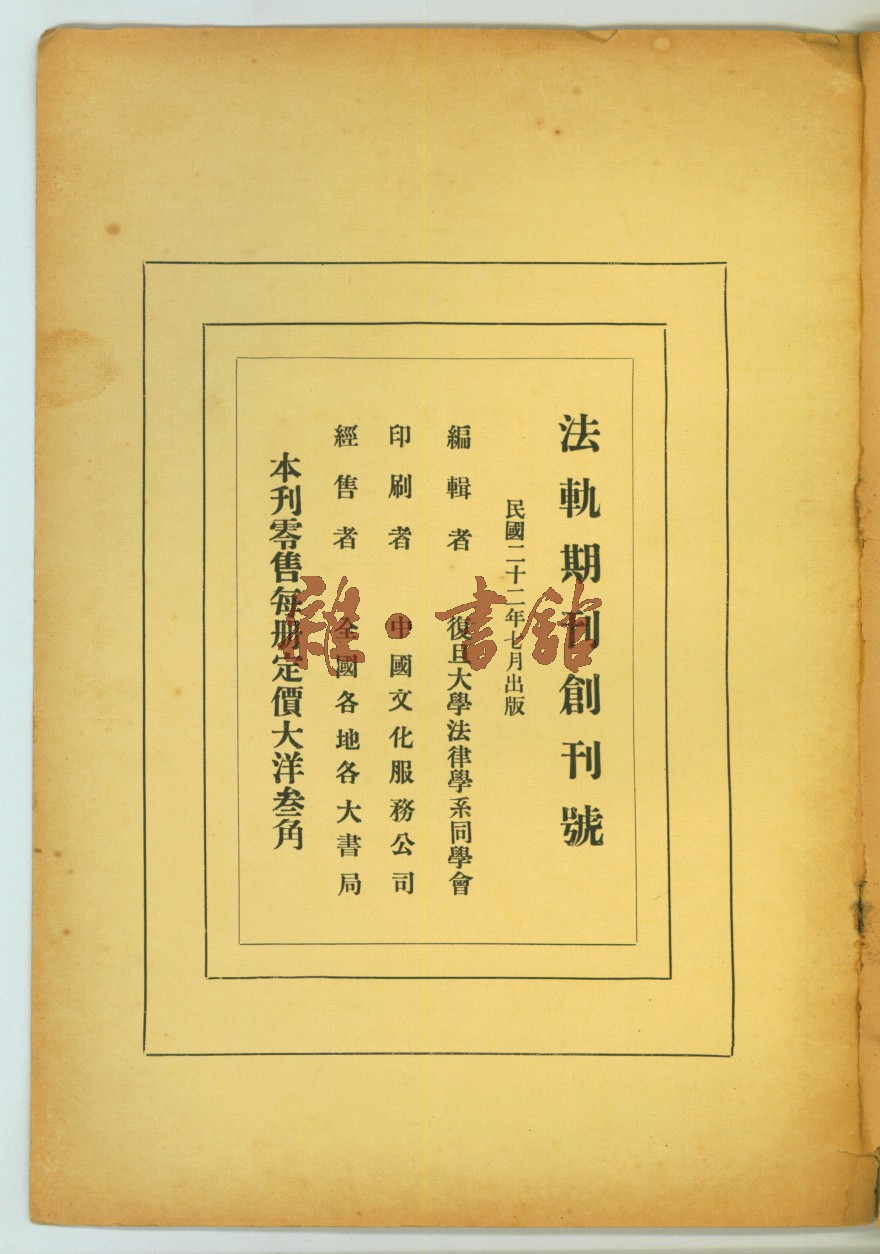 法軌期刊創刊號
民國二十二年七月出版
編輯者 復旦大學法律學系同學會
印刷者 中國文化服務公司
經售者 全國各地各大書局
本刊零售每册定價大洋叁角
雜·書館